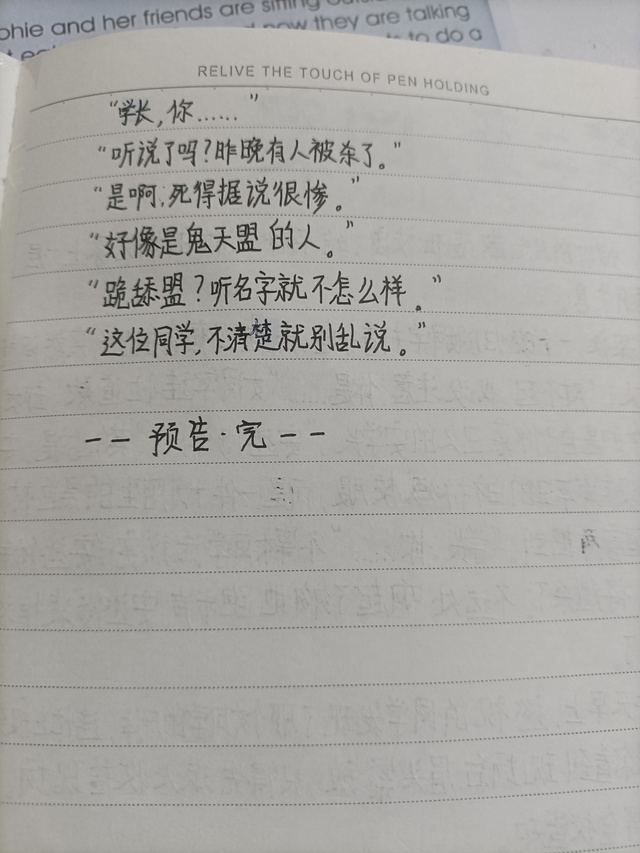 phie and her friends are sitting outsi
now they are talking
to do a
RELIVE THE TOUCH OF PEN HOLDING
“学长，你……”
“听说了吗？昨晚有人被杀了。”
“是啊，死得据说很惨。”
“好像是鬼天盟的人。”
“跪舔盟？听名字就不怎么样。”
“这位同学，不清楚就别乱说。”
－－ 预告·完 －－